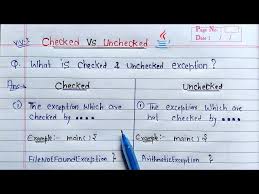 Page No.
Date
V.V.I
Checked Vs Unchecked
Q. What is Checked & Unchecked exception?
Ans- Checked Unchecked
① The exception which are ① The exception which are
checked by .... not checked by ....
Example:- main() { Example:- main() {
FileNotFoundException } ArithmeticException }